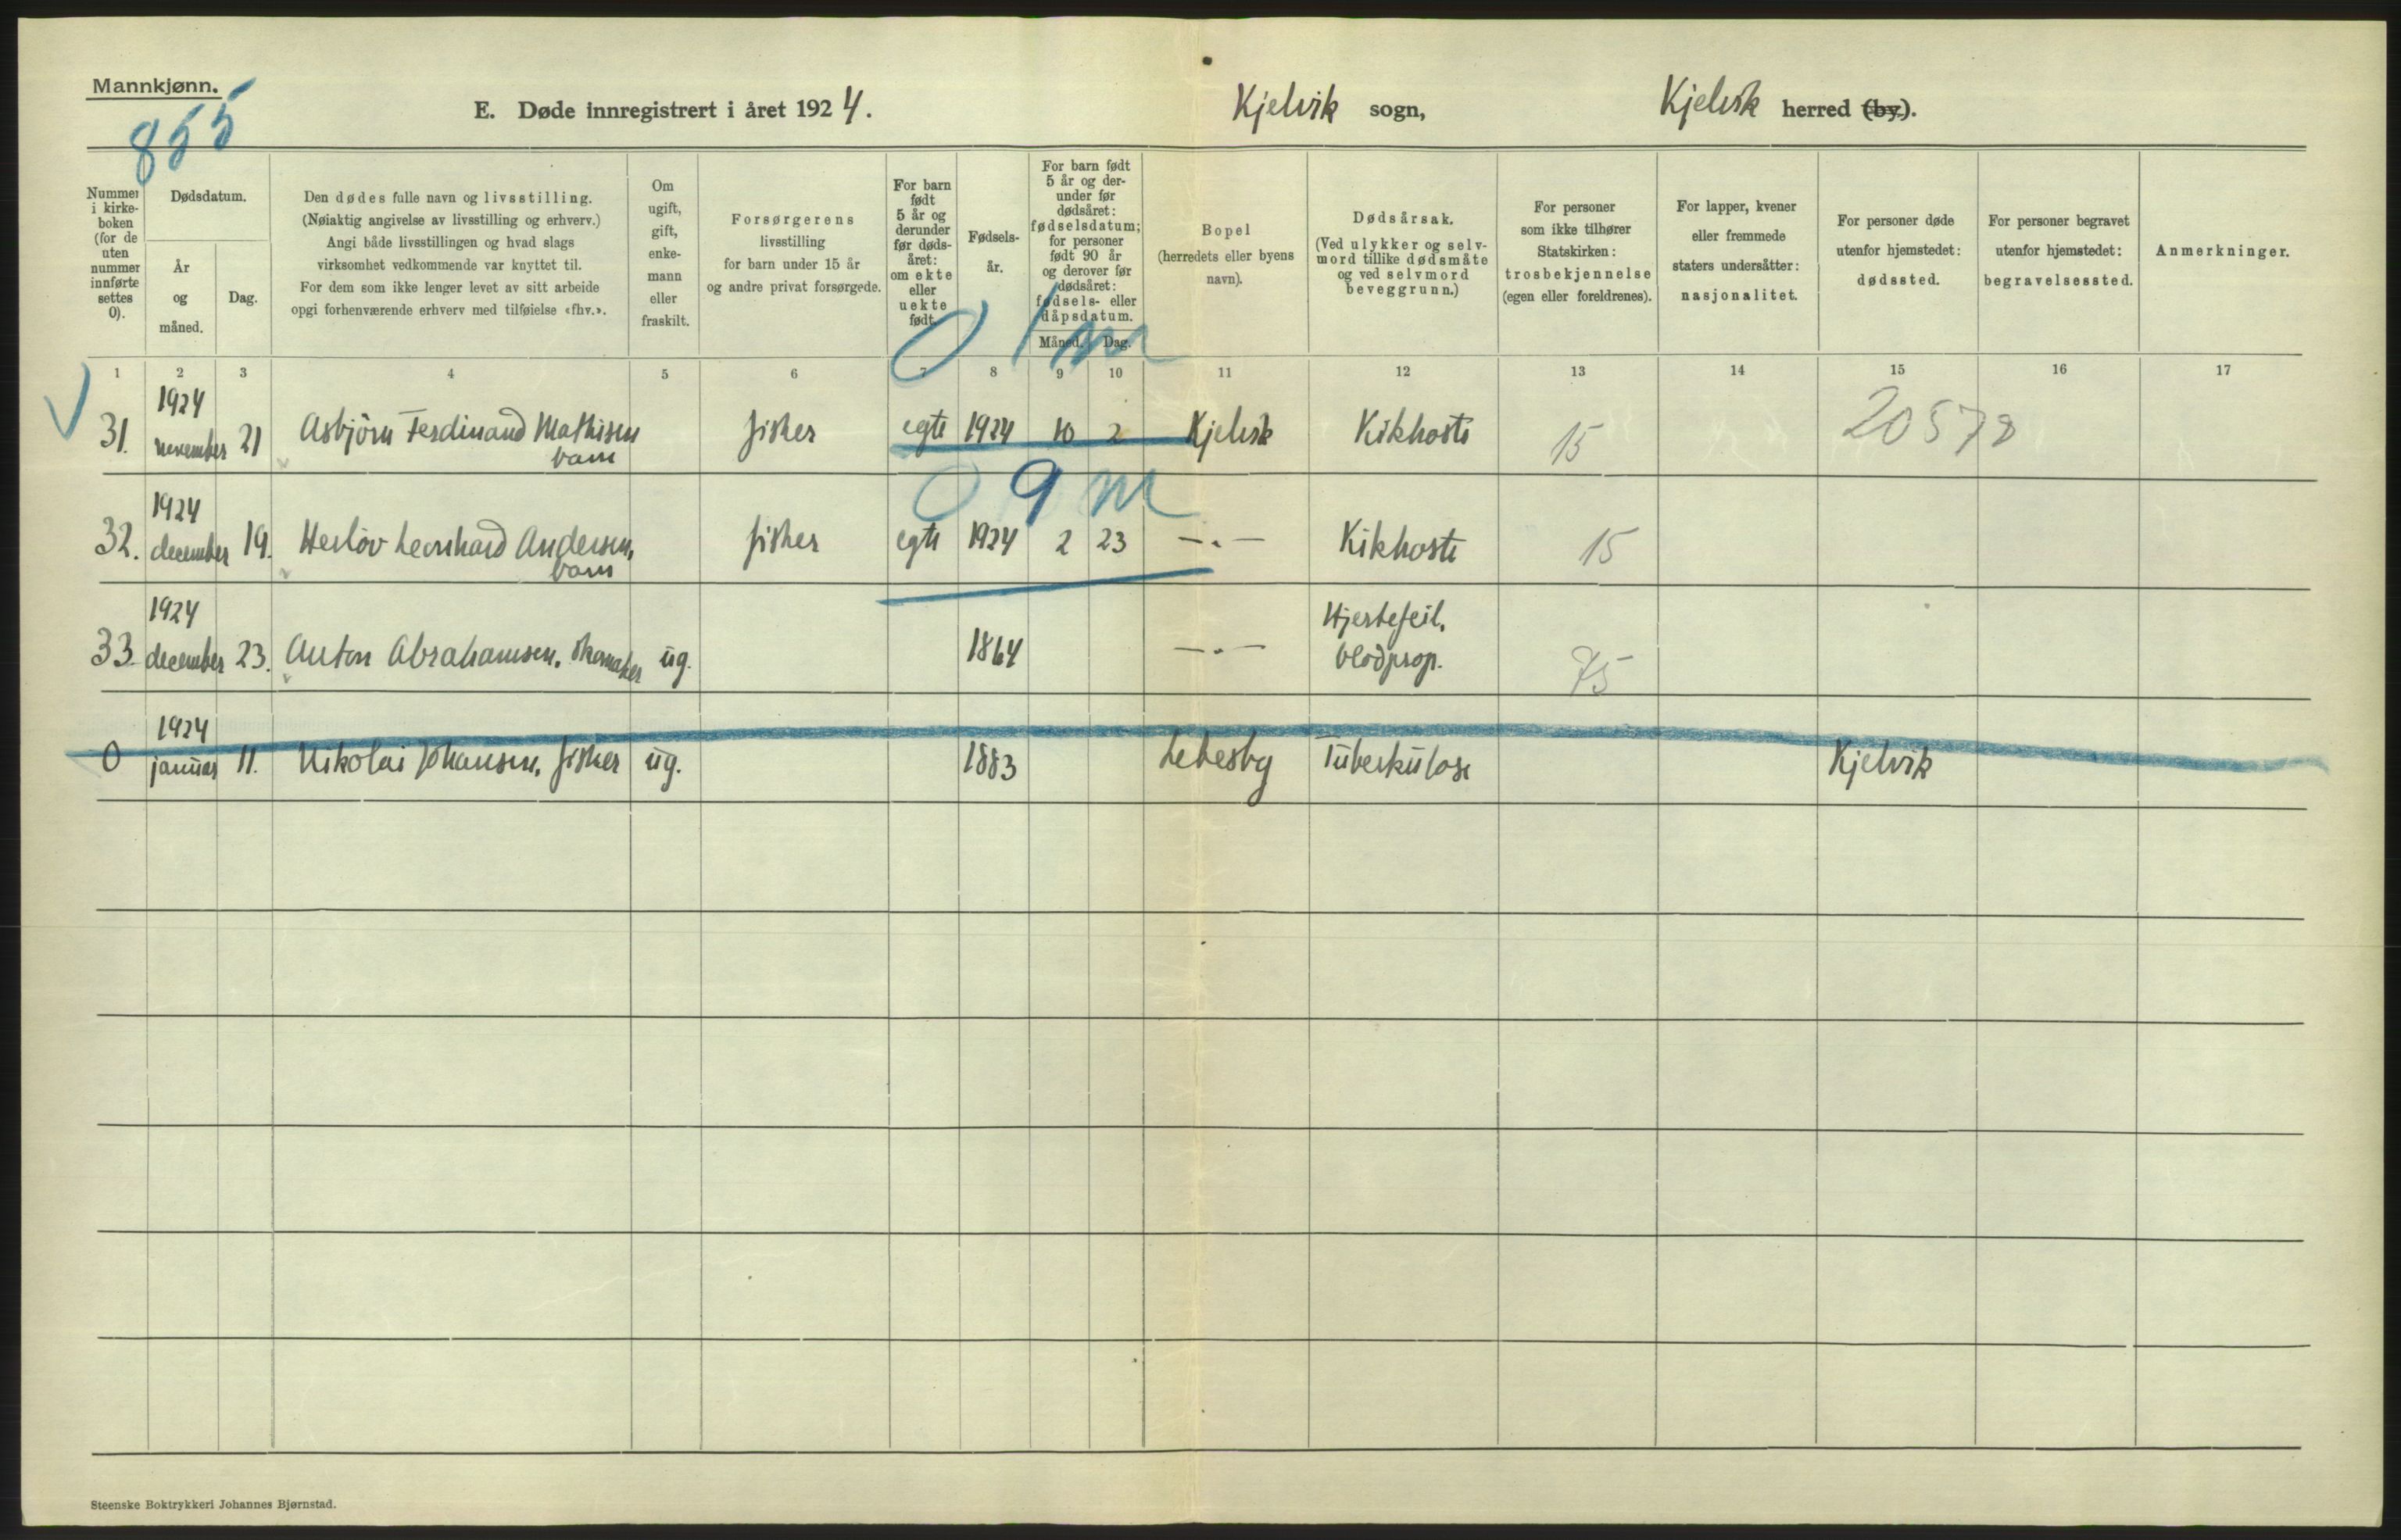 Mannkjønn.
855
E. Døde innregistrert i året 1924.
Kjelvik sogn,
Kjelvik herred (by).
Nummer i kirkeboken (for de uten nummer innførte settes 0).
Dødsdatum.
År og måned.
Dag.
Den dødes fulle navn og livsstilling.
(Nøiaktig angivelse av livsstilling og erhverv.)
Angi både livsstillingen og hvad slags
virksomhet vedkommende var knyttet til.
For dem som ikke lenger levet av sitt arbeide
opgi forhenværende erhverv med tilføielse «fhv.».
Om ugift, gift, enkemann eller fraskilt.
Forsørgerens
livsstilling
for barn under 15 år
og andre privat forsørgede.
For barn født 5 år og derunder før dødsåret: om ekte eller uekte født.
Fødselsår.
For barn født 5 år og derunder før dødsåret: fødselsdatum; for personer født 90 år og derover før dødsåret: fødsels- eller dåpsdatum.
Måned. Dag.
Bopel
(herredets eller byens
navn).
Dødsårsak.
(Ved ulykker og selvmord tillike dødsmåte og ved selvmord beveggrunn.)
For personer
som ikke tilhører
Statskirken:
trosbekjennelse
(egen eller foreldrenes).
For lapper, kvener
eller fremmede
staters undersåtter:
nasjonalitet.
For personer døde
utenfor hjemstedet:
dødssted.
For personer begravet
utenfor hjemstedet:
begravelsessted.
Anmerkninger.
0 1 m
1 2 3 4 5 6 7 8 9 10 11 12 13 14 15 16 17
31. 1924 november 21 Asbjörn Ferdinand Mathisen barn fisker egte 1924 10 2 Kjelvik Kikhoste 15 20578
0 9 m
32. 1924 december 19. Herlöv Leonhard Andersen, barn fisker egte 1924 2 23 —„— Kikhoste 15
33. 1924 december 23. Anton Abrahamsen, skomaker ug. 1864 —„— Hjertefeil, blodprop. 75
0 1924 januar 11. Nikolai Johansen, fisker ug. 1883 Lebesby Tuberkulose Kjelvik
Steenske Boktrykkeri Johannes Bjørnstad.